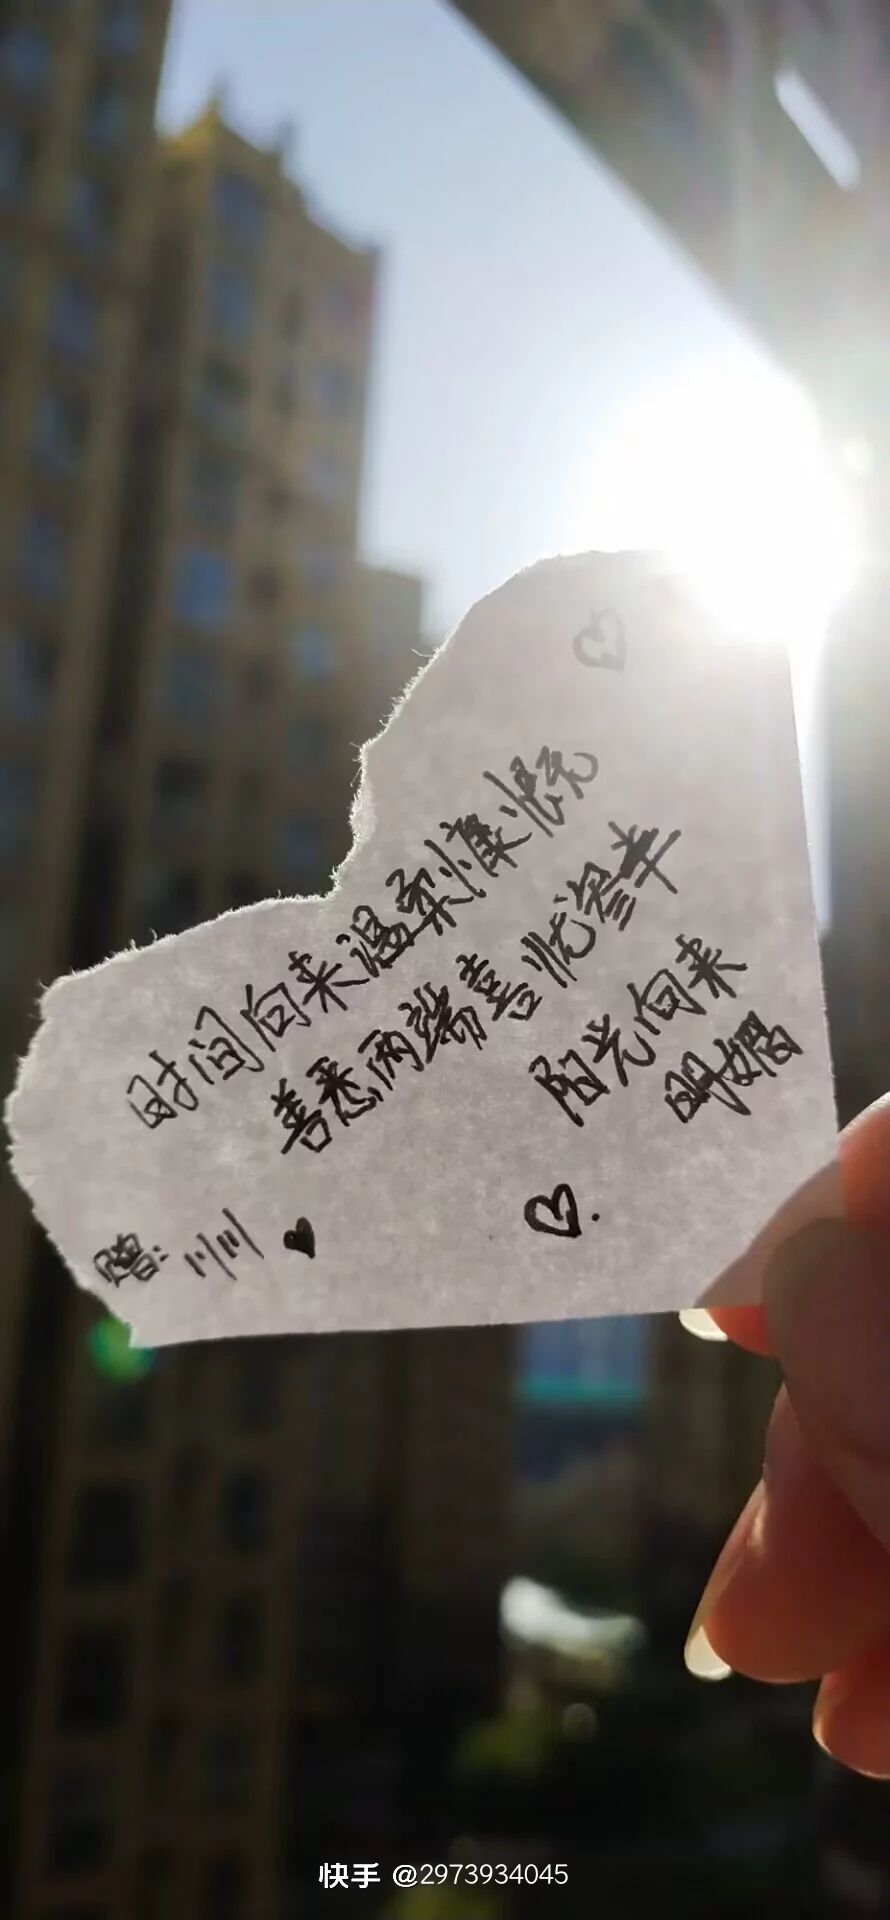 时间向来温柔慷慨
善恶两端喜忧参半
阳光向来
明媚
赠：川川
快手 @2973934045